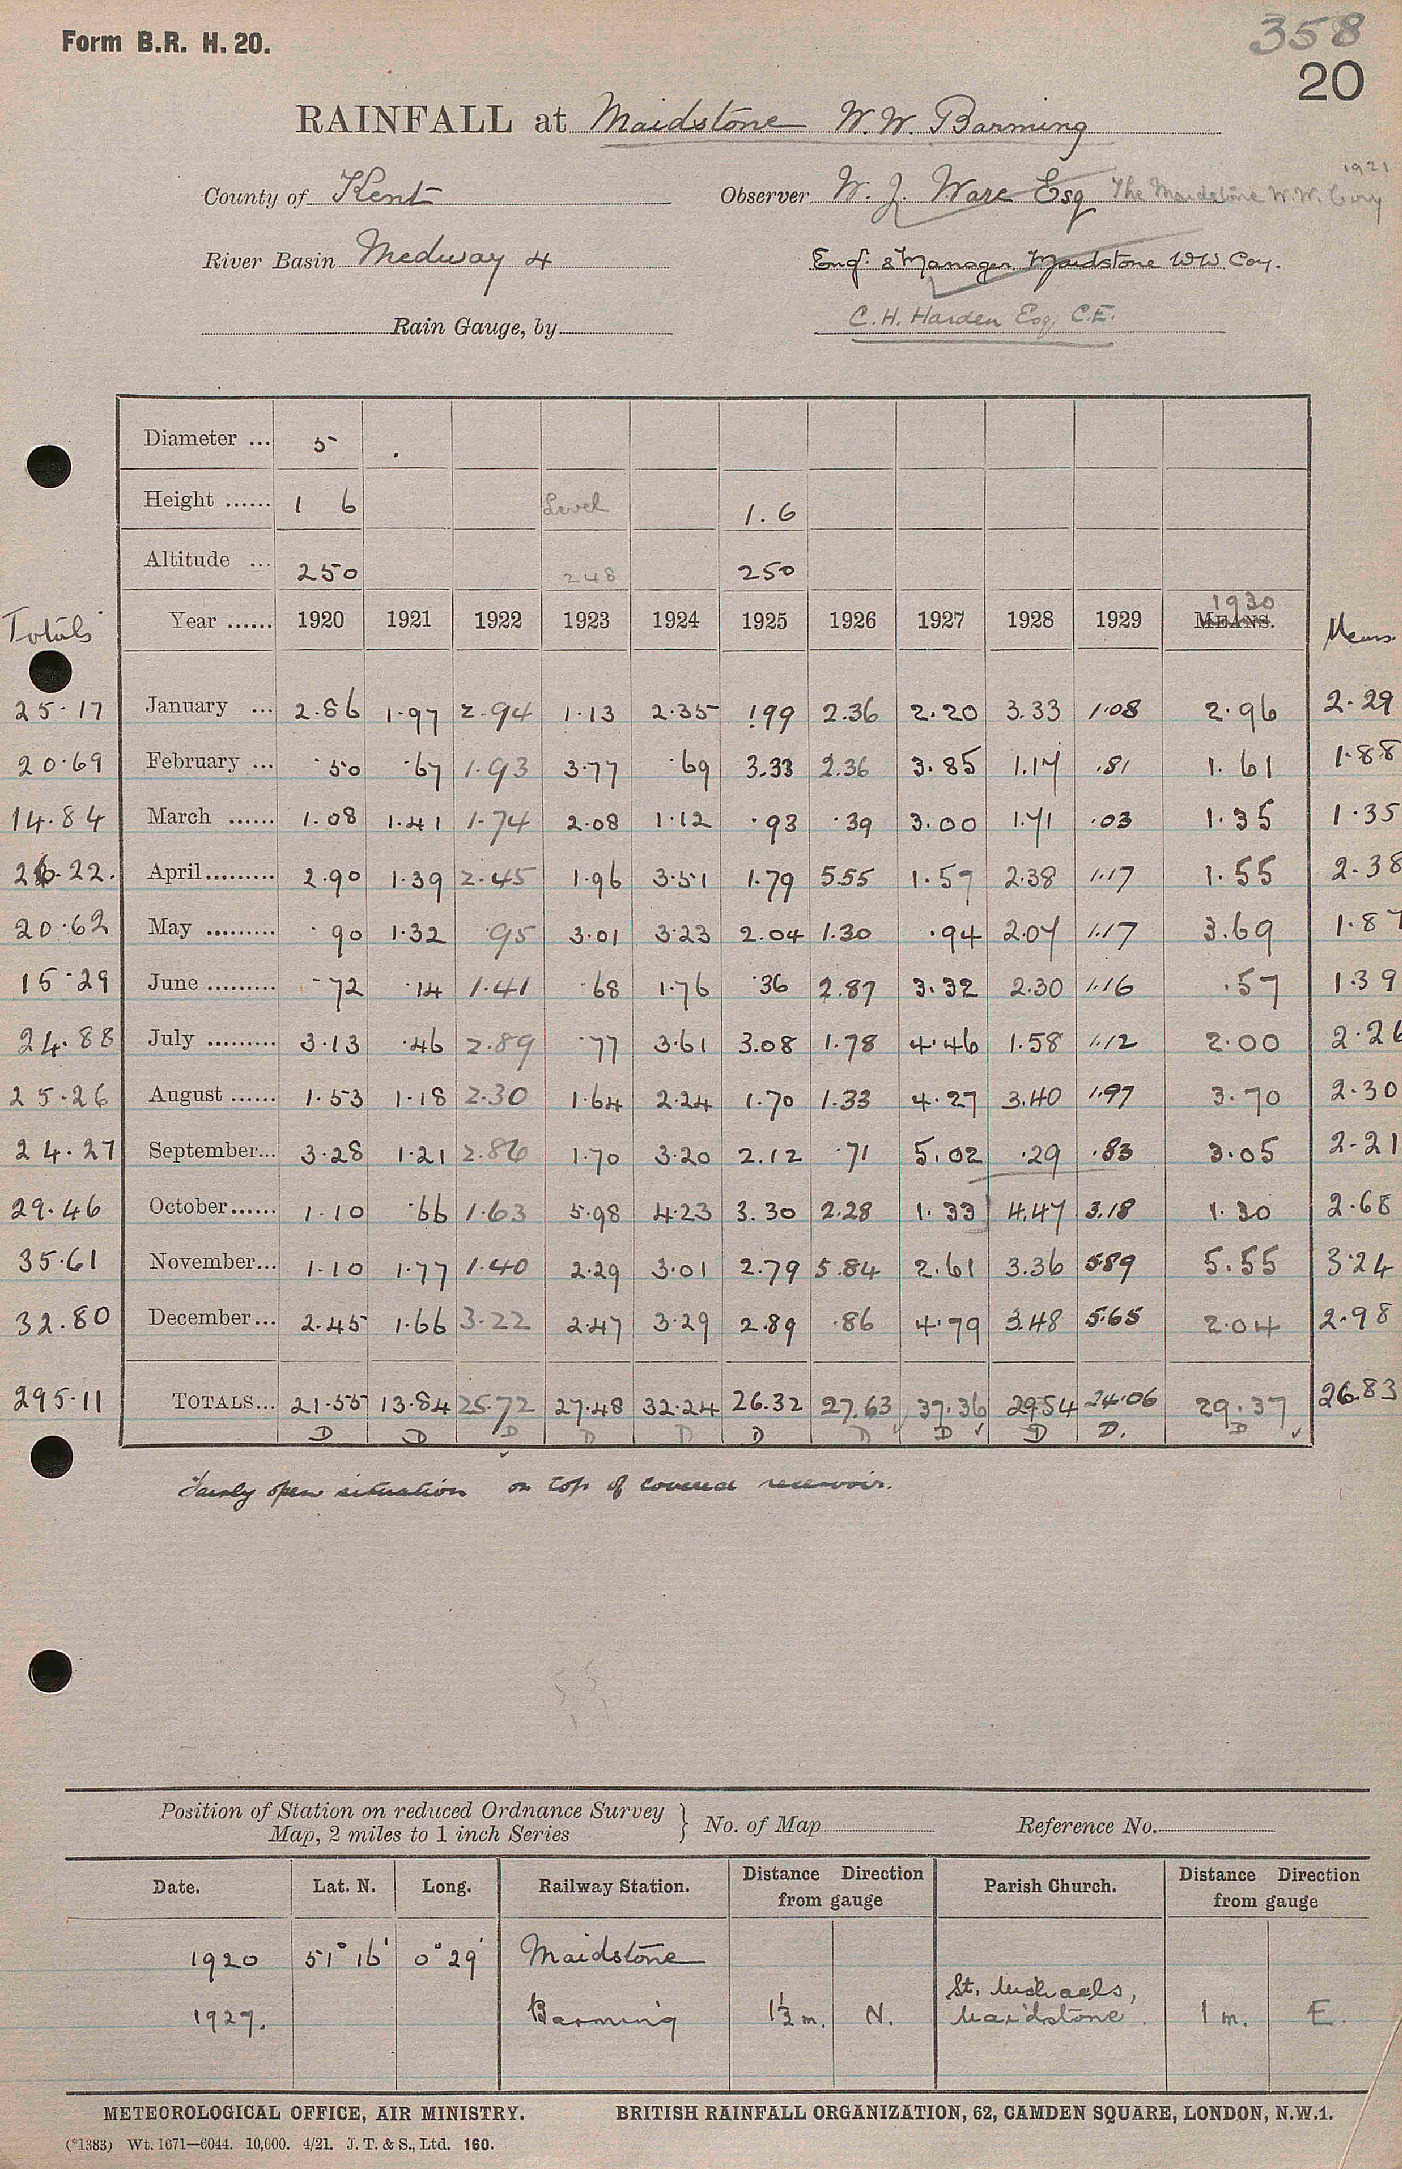 Form B.R. H. 20.
358
20
RAINFALL at Maidstone W.W. Barming
1921
County of Kent Observer W. J. Ware Esq The Maidstone W.W. Coy
River Basin Medway 4 Engr. & Manager Maidstone WW Coy.
Rain Gauge, by C.H. Harden Esq, C.E.
Diameter ... 5
Height ...... 1 6 Level 1.6
Altitude ... 250 248 250
1930
Totals Year ...... 1920 1921 1922 1923 1924 1925 1926 1927 1928 1929 MEANS. Means
25.17 January ... 2.86 1.97 2.94 1.13 2.35 1.99 2.36 2.20 3.33 1.08 2.96 2.29
20.69 February ... .50 .67 1.93 3.77 .69 3.33 2.36 3.85 1.14 .81 1.61 1.88
14.84 March ...... 1.08 1.41 1.74 2.08 1.12 .93 .39 3.00 1.71 .03 1.35 1.35
26.22. April......... 2.90 1.39 2.45 1.96 3.51 1.79 5.55 1.57 2.38 1.17 1.55 2.38
20.62 May ......... .90 1.32 .95 3.01 3.23 2.04 1.30 .94 2.07 1.17 3.69 1.87
15.29 June ......... .72 .14 1.41 .68 1.76 .36 2.87 3.32 2.30 1.16 .57 1.39
24.88 July ......... 3.13 .46 2.89 .77 3.61 3.08 1.78 4.46 1.58 1.12 2.00 2.26
25.26 August ...... 1.53 1.18 2.30 1.64 2.24 1.70 1.33 4.27 3.40 1.97 3.70 2.30
24.27 September... 3.28 1.21 2.86 1.70 3.20 2.12 .71 5.02 .29 .83 3.05 2.21
29.46 October...... 1.10 .66 1.63 5.98 4.23 3.30 2.28 1.33 4.47 3.18 1.30 2.68
35.61 November... 1.10 1.77 1.40 2.29 3.01 2.79 5.84 2.61 3.36 5.89 5.55 3.24
32.80 December... 2.45 1.66 3.22 2.47 3.29 2.89 .86 4.79 3.48 5.65 2.04 2.98
295.11 TOTALS... 21.55 13.84 25.72 27.48 32.24 26.32 27.63 37.36 29.54 24.06 29.37 26.83
D D D D D D D D D D. D
Fairly open situation on top of covered reservoir.
Position of Station on reduced Ordnance Survey
Map, 2 miles to 1 inch Series } No. of Map Reference No.
Date. Lat. N. Long. Railway Station. Distance Direction from gauge Parish Church. Distance Direction from gauge
1920 51° 16' 0° 29' Maidstone
1927. Barming 1½ m. N. St. Michaels, Maidstone 1 m. E.
METEOROLOGICAL OFFICE, AIR MINISTRY. BRITISH RAINFALL ORGANIZATION, 62, CAMDEN SQUARE, LONDON, N.W.1.
(*1383) Wt. 1671—6044. 10,000. 4/21. J. T. & S., Ltd. 160.